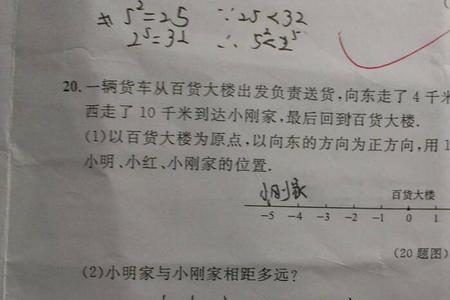 5²=25 ∵25<32
2⁵=32 ∴5²<2⁵
20. 一辆货车从百货大楼出发负责送货,向东走了 4 千米
西走了 10 千米到达小刚家,最后回到百货大楼.
(1)以百货大楼为原点,以向东的方向为正方向,用 1
小明、小红、小刚家的位置.
小刚家 百货大楼
-5 -4 -3 -2 -1 0 1
(20 题图)
(2)小明家与小刚家相距多远?